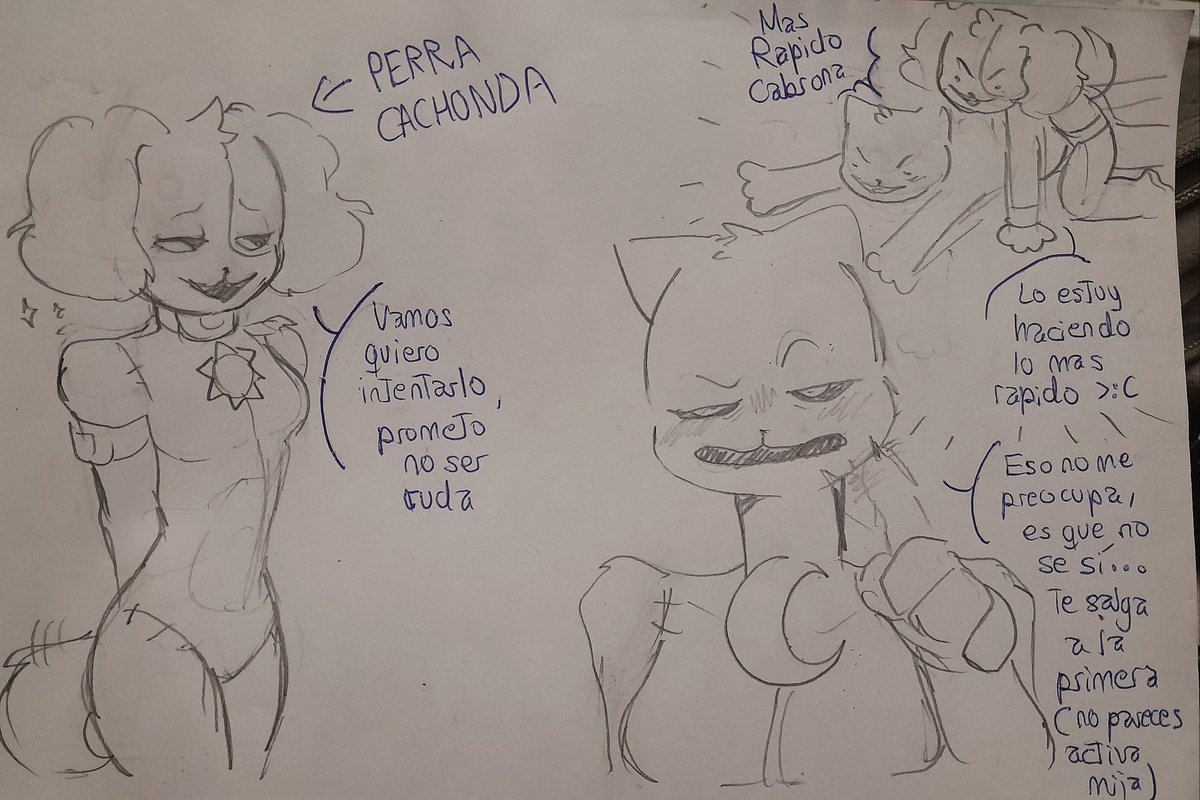 PERRA
CACHONDA
Vamos
quiero
intentarlo,
prometo
no ser
ruda
Mas
Rapido
Cabrona
Lo estuy
haciendo
lo mas
rapido >:C
Eso no me
preocupa,
es que no
se sí...
Te salga
a la
primera
(no pareces
activa
mija)